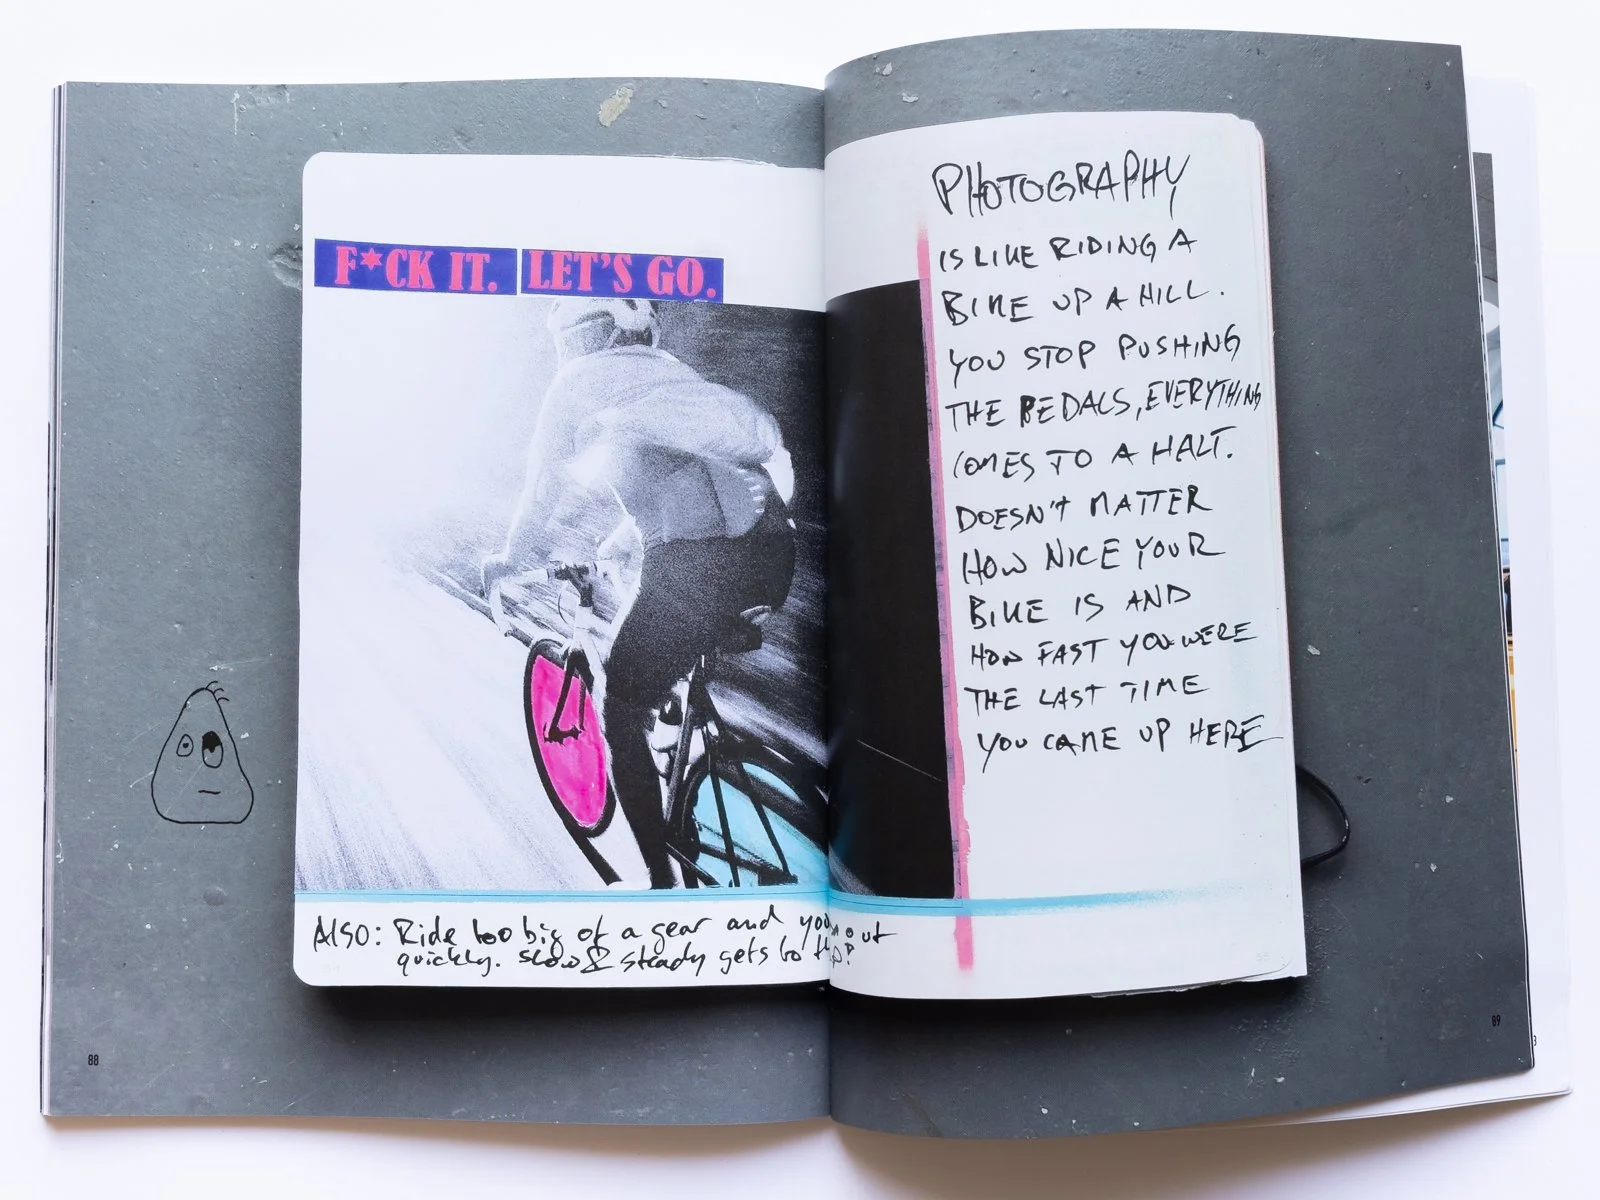 F*CK IT. LET'S GO.
ALSO: Ride too big of a gear and you out
quickly. slow & steady gets to the
PHOTOGRAPHY
IS LIKE RIDING A
BIKE UP A HILL.
YOU STOP PUSHING
THE PEDALS, EVERYTHING
COMES TO A HALT.
DOESN'T MATTER
HOW NICE YOUR
BIKE IS AND
HOW FAST YOU WERE
THE LAST TIME
YOU CAME UP HERE
88
89